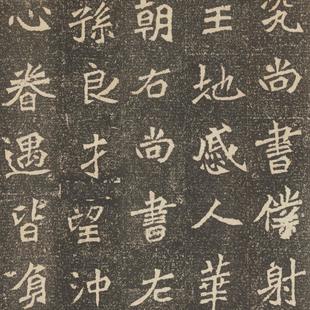 尚書僕射
王地感人華
朝右尚書左
孫良才望沖
心眷遇皆